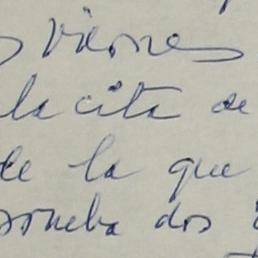 viernes
la cita de
de la que
prueba dos